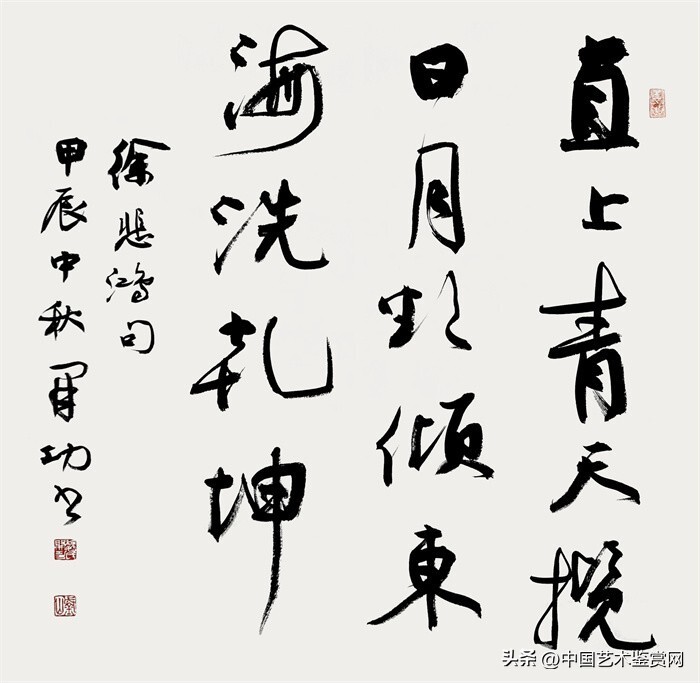 直上青天揽
日月欲傾東
海洗乾坤
徐悲鸿句
甲辰中秋功书
头条 @中国艺术鉴赏网